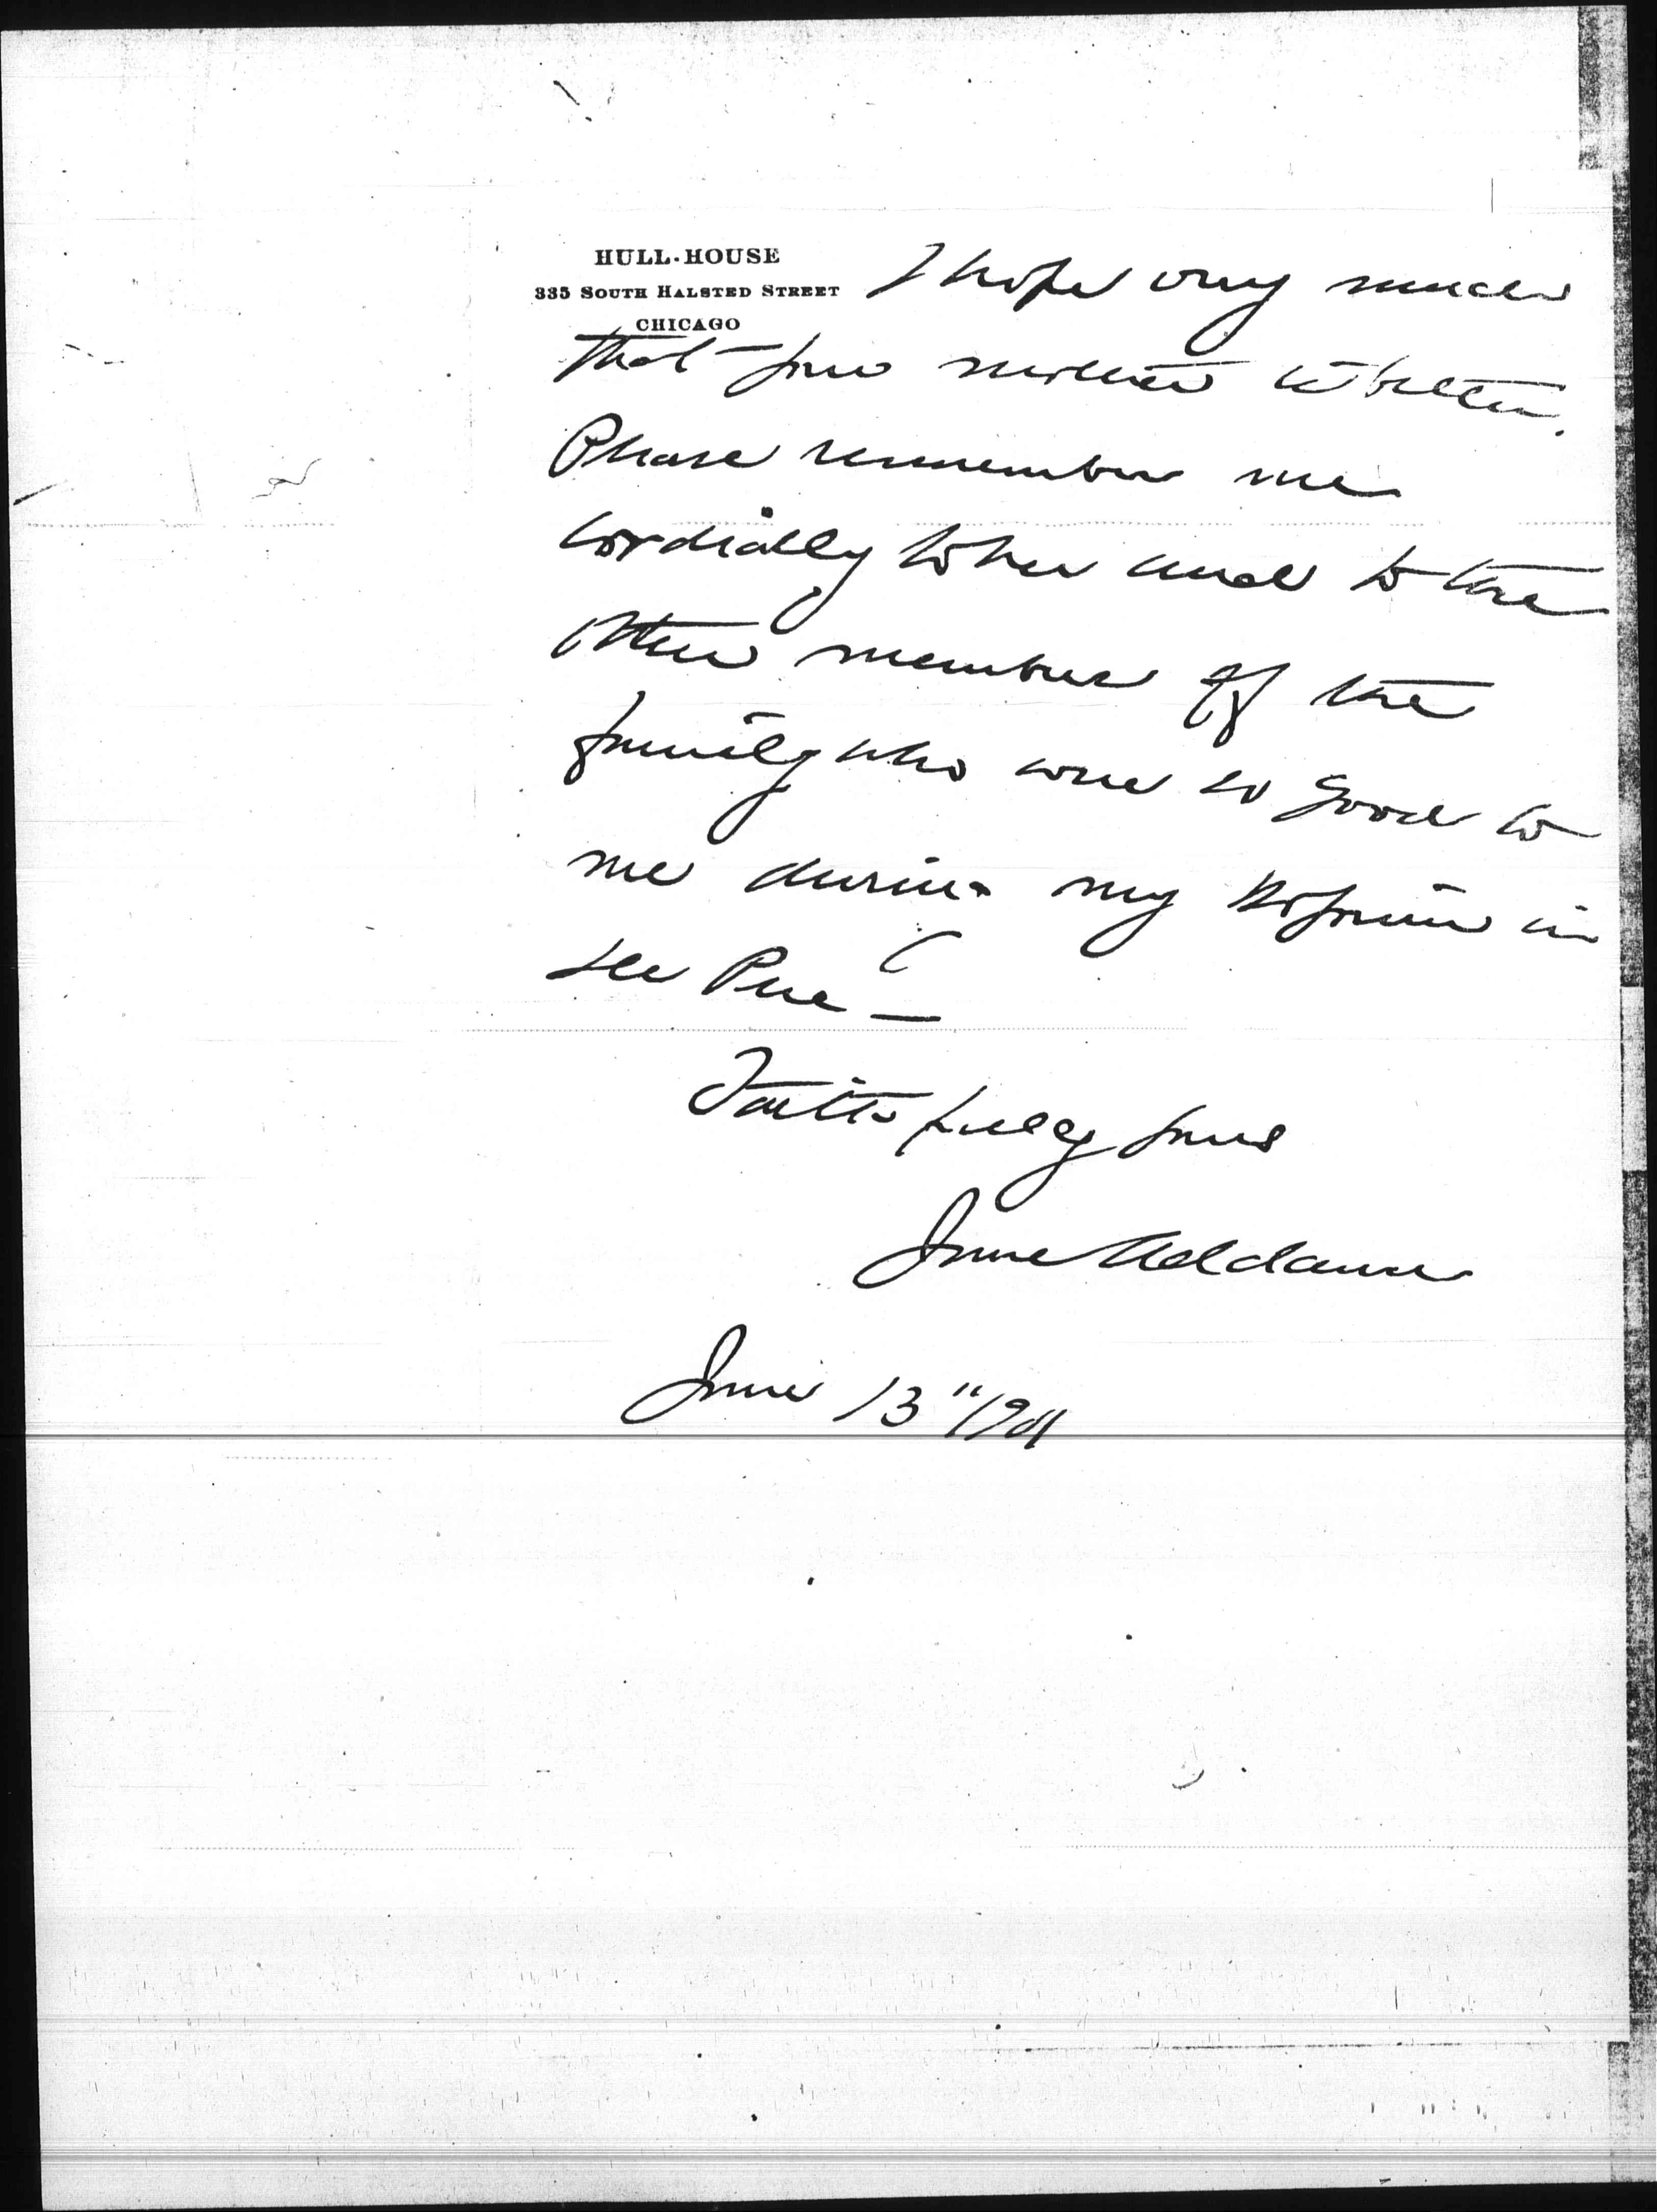 HULL-HOUSE
335 SOUTH HALSTED STREET
CHICAGO
I hope very much
that your mother is better.
Please remember me
cordially to her and to the
other members of the
family who were so good to
me during my sojourn in
Faithfully yours
Jane Addams
June 13" 1901